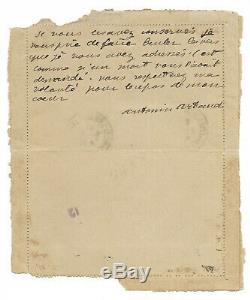 si vous les avez conservés je
vous prie de faire brûler les vers
que je vous avez adressés. C'est
comme si un mort vous l'écrit
demandé. vous respectez ma
volonté pour le repos de mon
coeur
Antonin Artaud